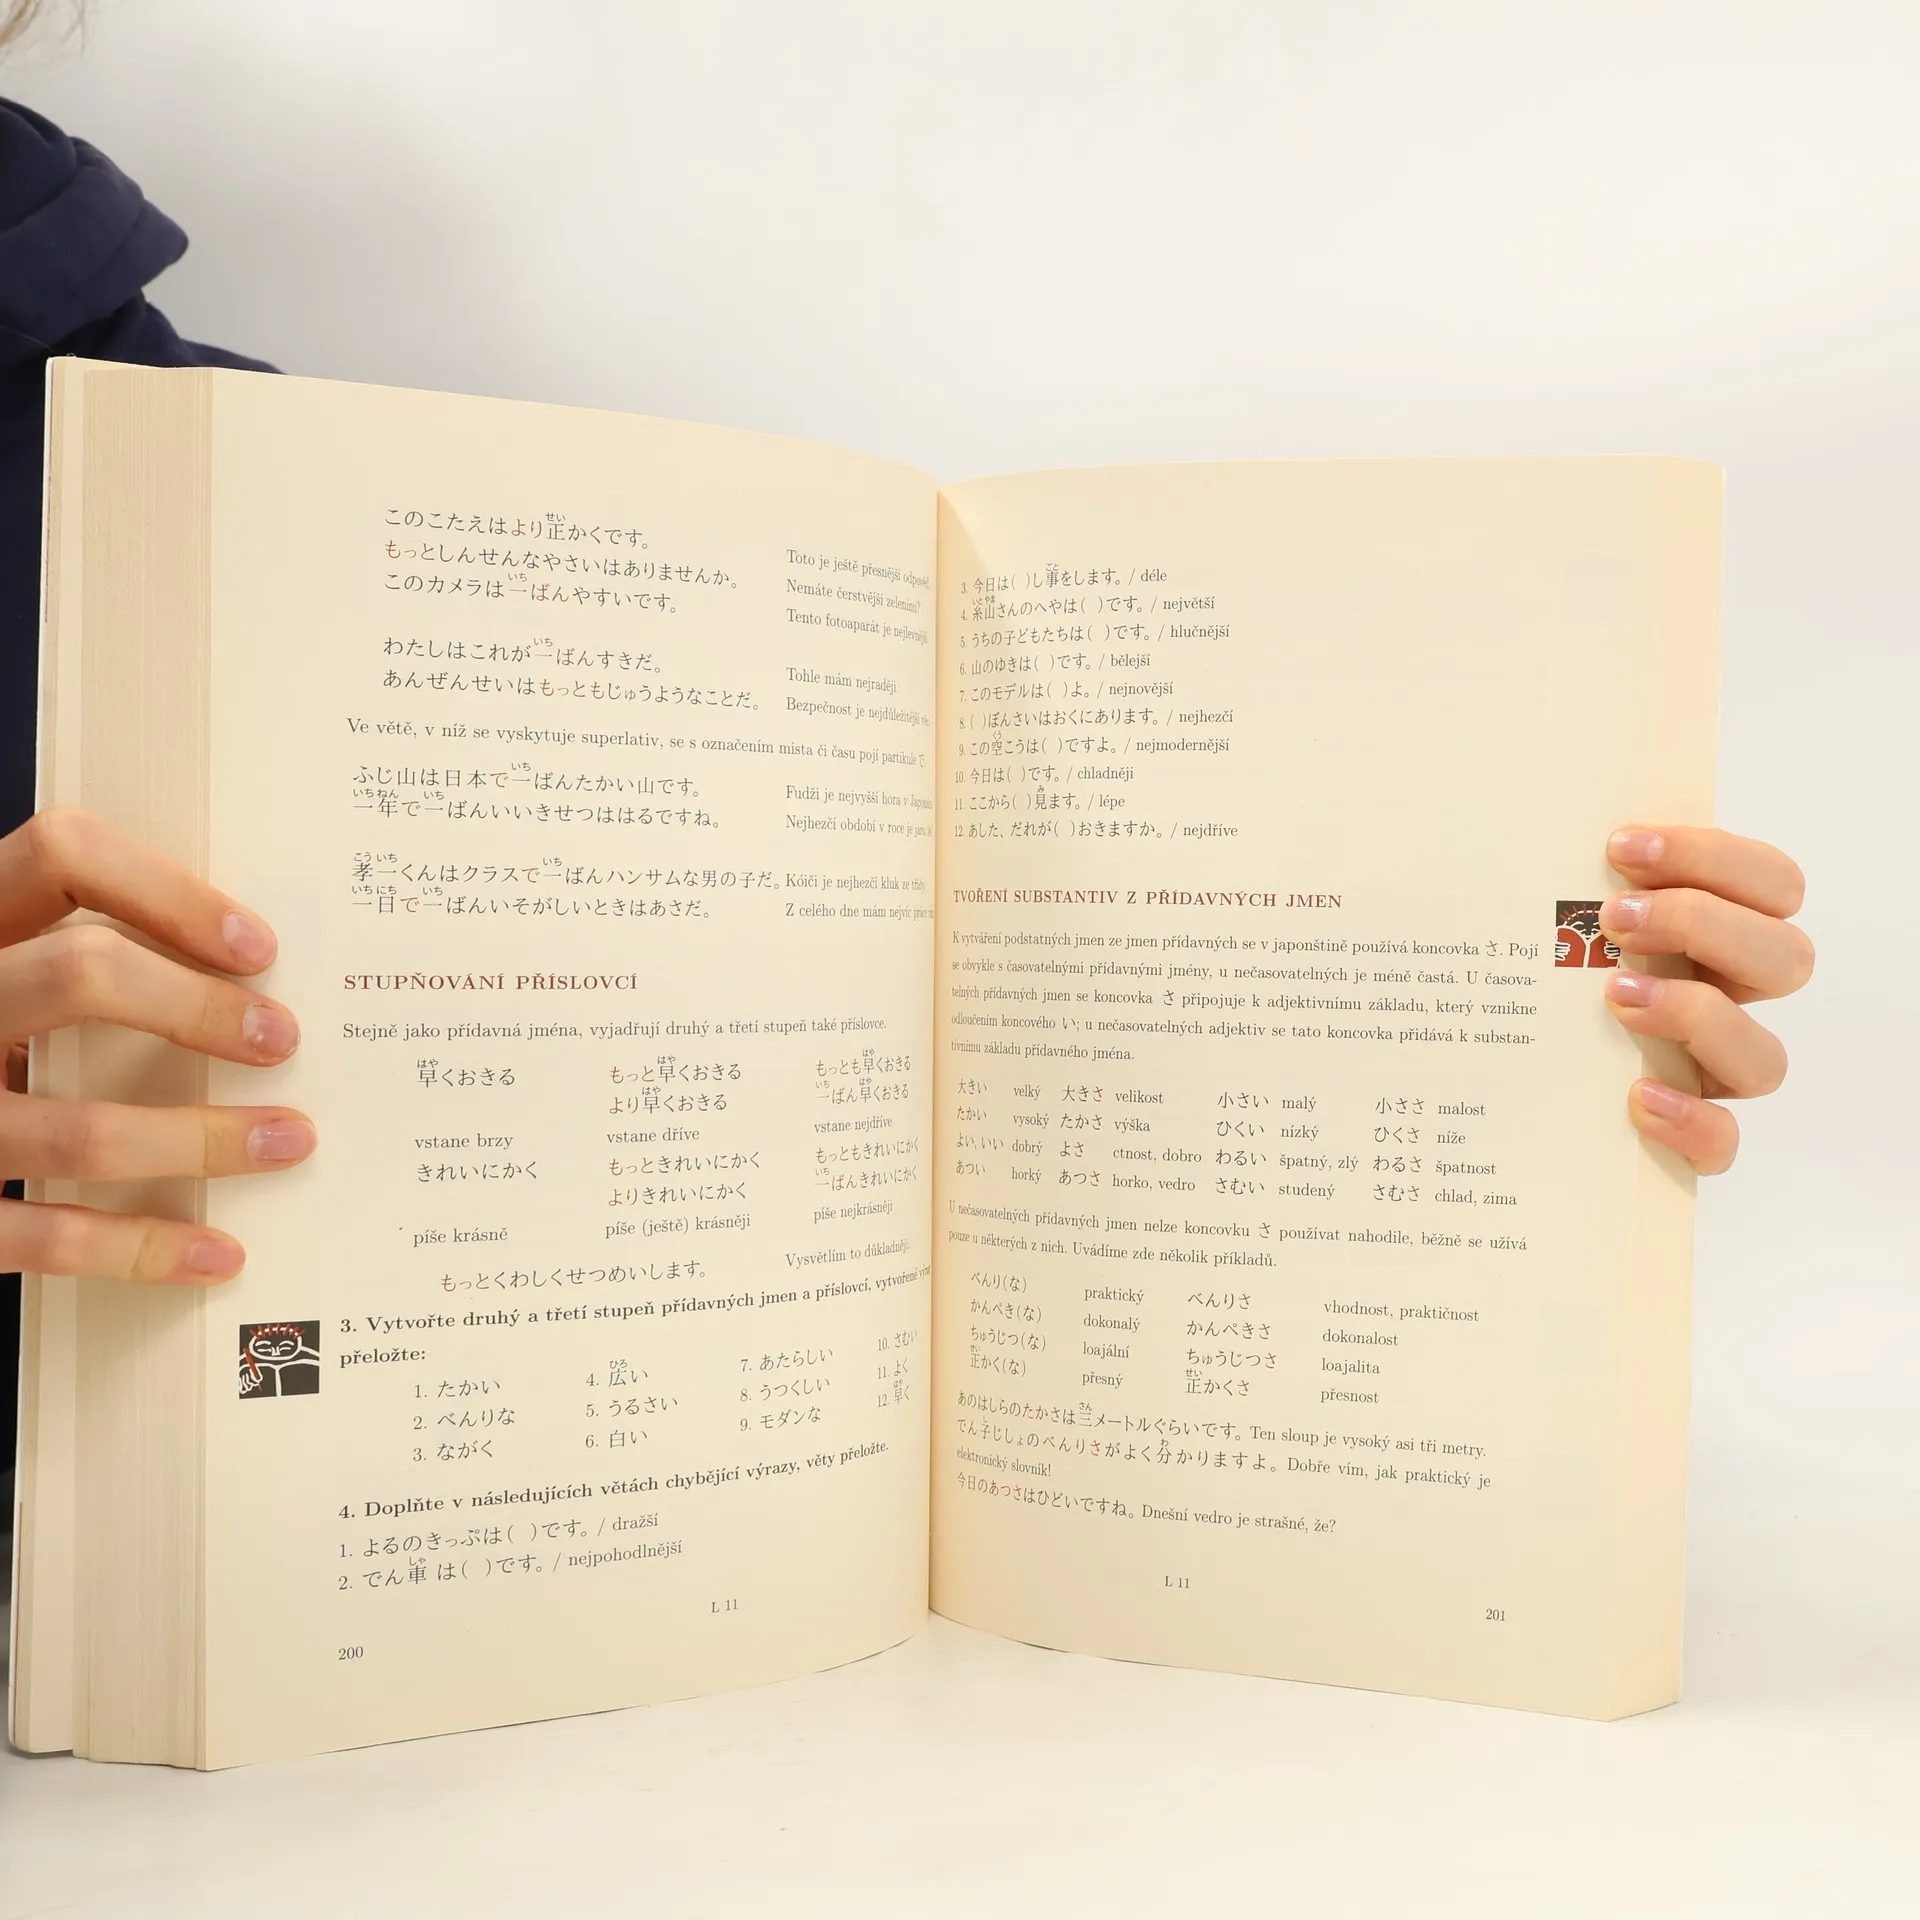 このこたえはより正かくです。
せい
Toto je ještě přesnější
もっとしんせんなやさいはありませんか。
Nemáte čerstvější zeleninu?
このカメラは一ばんやすいです。
いち
Tento fotoaparát je nejlevnější.
わたしはこれが一ばんすきだ。
いち
Tohle mám nejraději.
あんぜんせいはもっともじゅうようなことだ。
Bezpečnost je nejdůležitější
Ve větě, v níž se vyskytuje superlativ, se s označením mista či času pojí partikule で
ふじ山は日本で一ばんたかい山です。
いち
Fudži je nejvyšší hora v
一年で一ばんいいきせつははるですね。
いちねん いち
Nejhezčí období v roce je
孝一くんはクラスで一ばんハンサムな男の子だ。
こういち いち
Kóiči je nejhezčí kluk ze třídy.
一日で一ばんいそがしいときはあさだ。
いちにち いち
Z celého dne mám nejvíc
STUPŇOVÁNÍ PŘÍSLOVCÍ
Stejně jako přídavná jména, vyjadřují druhý a třetí stupeň také příslovce.
はや はや はや
早くおきる もっと早くおきる もっとも早くおきる
はや いち はや
より早くおきる 一ばん早くおきる
vstane brzy vstane dříve vstane nejdříve
きれいにかく もっときれいにかく もっともきれいにかく
いち
よりきれいにかく 一ばんきれいにかく
píše krásně píše (ještě) krásněji píše nejkrásněji
もっとくわしくせつめいします。 Vysvětlím to důkladněji.
3. Vytvořte druhý a třetí stupeň přídavných jmen a příslovcí, vytvořené
přeložte:
1. たかい 4. 広い 7. あたらしい 10. さむい
ひろ
2. べんりな 5. うるさい 8. うつくしい 11. よく
3. ながく 6. 白い 9. モダンな 12. 早く
はや
4. Doplňte v následujících větách chybějící výrazy, věty přeložte.
1. よるのきっぷは( )です。/ dražší
2. でん車は( )です。/ nejpohodlnější
しゃ
L 11
200
3. 今日は( )し事をします。/ déle
ごと
4. 糸山さんのへやは( )です。/ největší
いとやま
5. うちの子どもたちは( )です。/ hlučnější
6. 山のゆきは( )です。/ bělejší
7. このモデルは( )よ。/ nejnovější
8. ( )ぼんさいはおくにあります。/ nejhezčí
9. この空こうは( )ですよ。/ nejmodernější
くう
10. 今日は( )です。/ chladněji
11. ここから( )見ます。/ lépe
み
12. あした、だれが( )おきますか。/ nejdříve
TVOŘENÍ SUBSTANTIV Z PŘÍDAVNÝCH JMEN
K vytváření podstatných jmen ze jmen přídavných se v japonštině používá koncovka さ. Pojí
se obvykle s časovatelnými přídavnými jmény, u nečasovatelných je méně častá. U časova-
telných přídavných jmen se koncovka さ připojuje k adjektivnímu základu, který vznikne
odloučením koncového い; u nečasovatelných adjektiv se tato koncovka přidává k substan-
tivnímu základu přídavného jména.
大きい velký 大きさ velikost 小さい malý 小ささ malost
たかい vysoký たかさ výška ひくい nízký ひくさ níže
よい, いい dobrý よさ ctnost, dobro わるい špatný, zlý わるさ špatnost
あつい horký あつさ horko, vedro さむい studený さむさ chlad, zima
U nečasovatelných přídavných jmen nelze koncovku さ používat nahodile, běžně se užívá
pouze u některých z nich. Uvádíme zde několik příkladů.
べんり(な) praktický べんりさ vhodnost, praktičnost
かんぺき(な) dokonalý かんぺきさ dokonalost
ちゅうじつ(な) loajální ちゅうじつさ loajalita
せい せい
正かく(な) přesný 正かくさ přesnost
あのはしらのたかさは三メートルぐらいです。Ten sloup je vysoký asi tři metry.
さん
でん子じしょのべんりさがよく分かりますよ。Dobře vím, jak praktický je
し わ
elektronický slovník!
今日のあつさはひどいですね。Dnešní vedro je strašné, že?
L 11
201